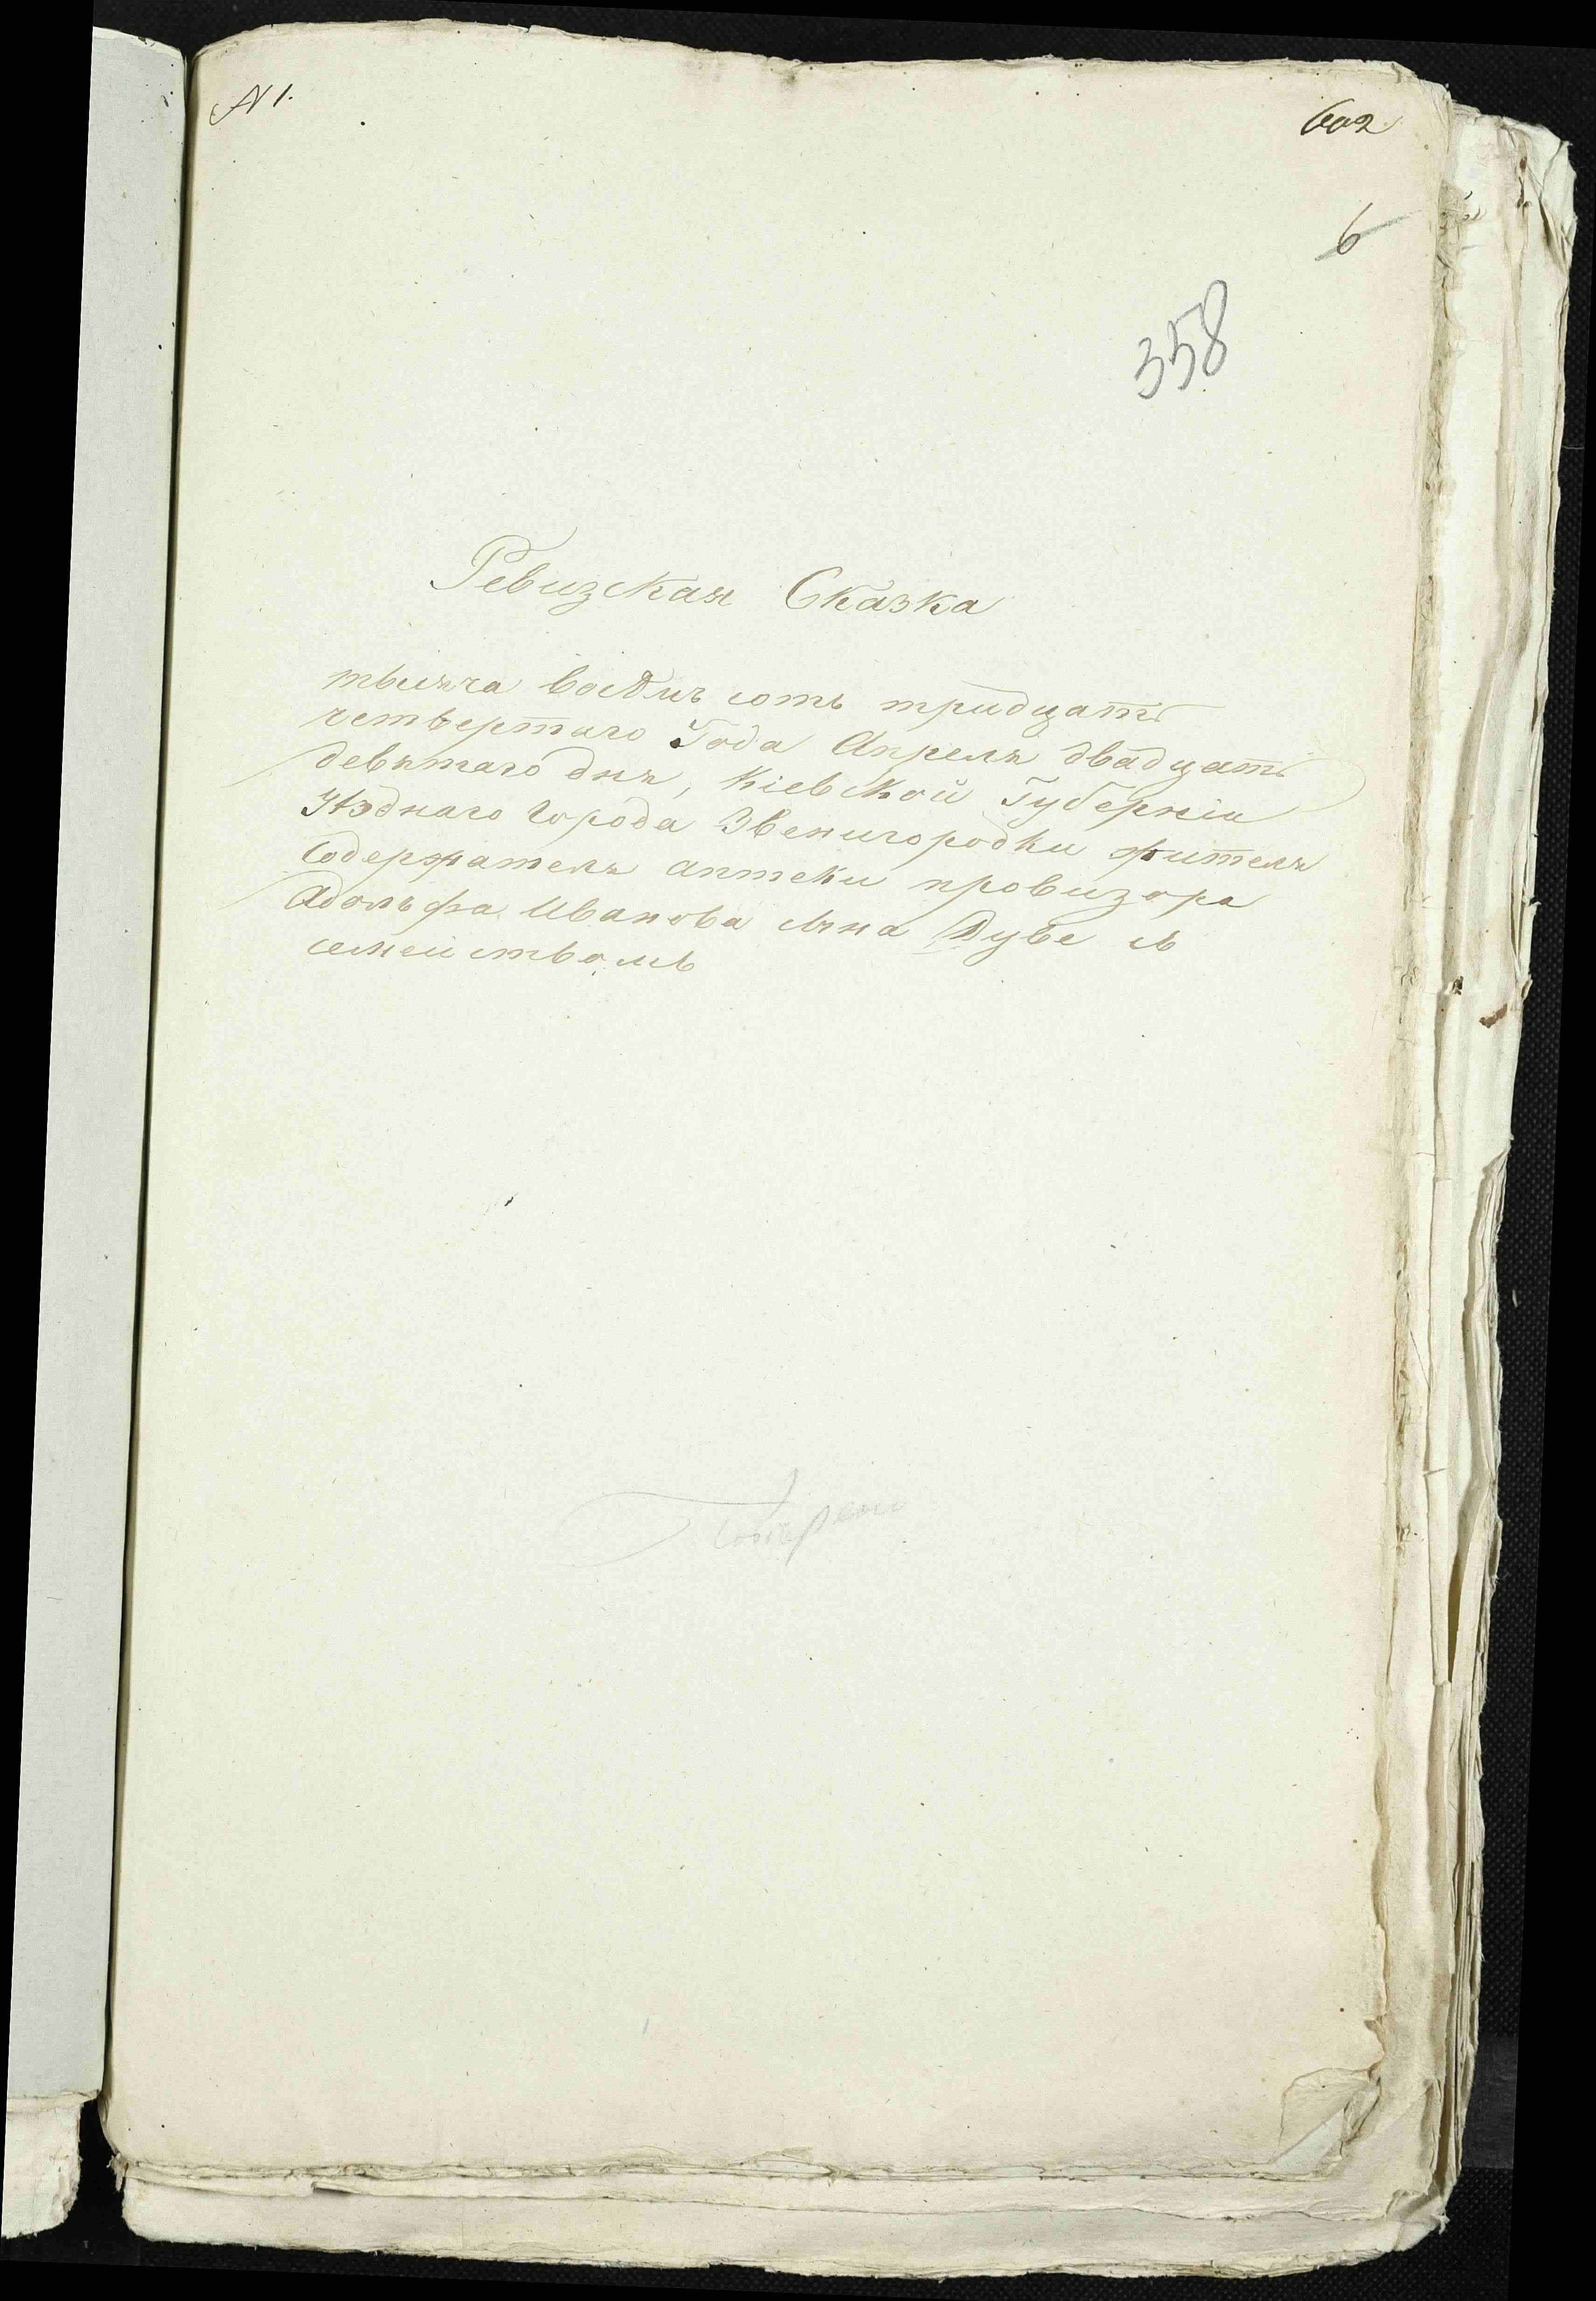 N 1.
602
6
358
Ревизская Сказка
тысяча восемь сотъ тридцать
четвертаго Года Апреля двадцать
девятаго дня, Кіевской Губерніи
Уѣзднаго Города Звенигородки жителя
Содержателя аптеки провизора
Адольфа Иванова сына Дубе съ
семействомъ